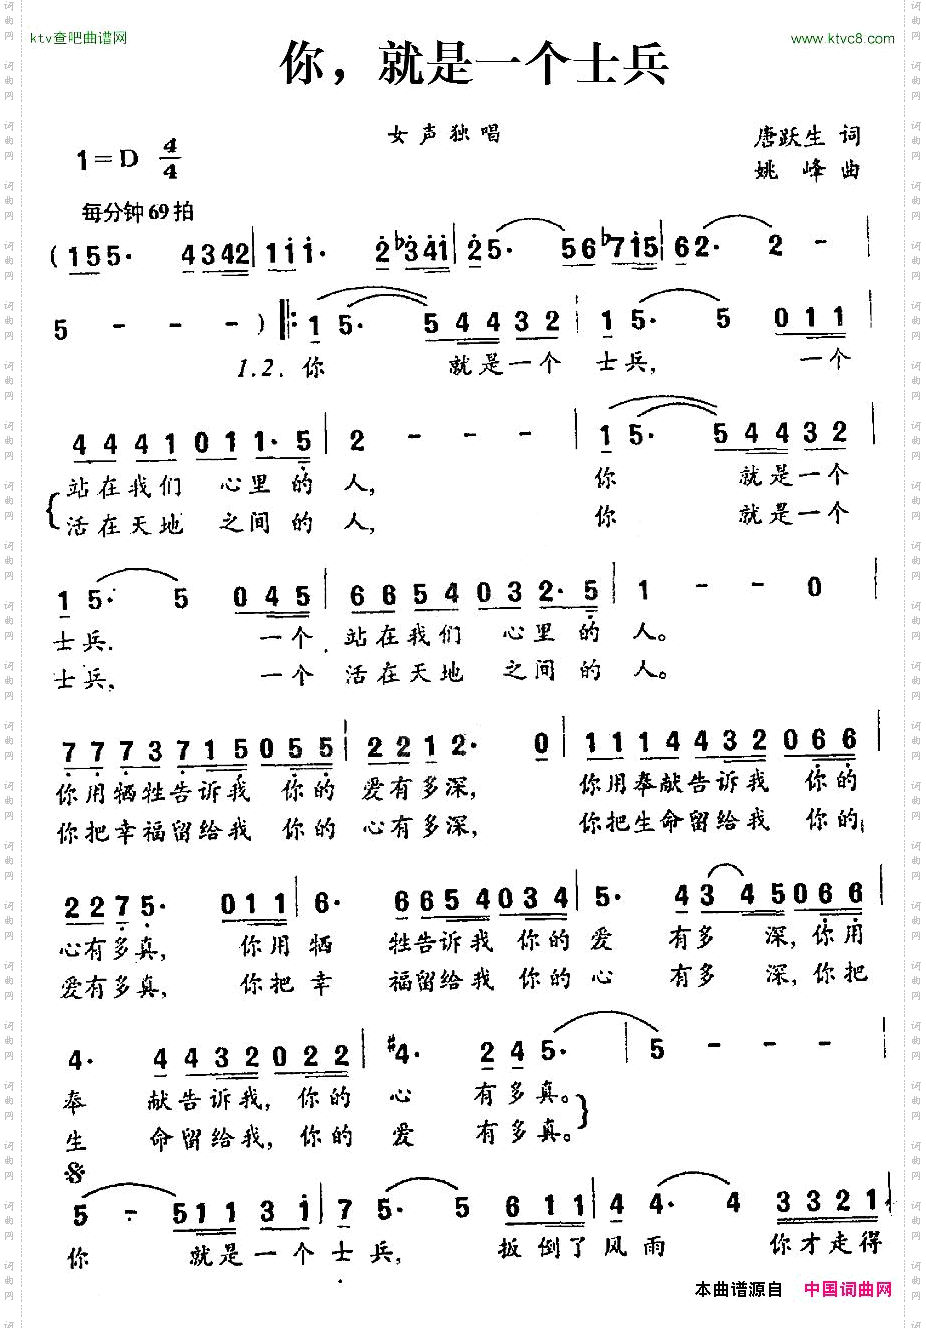 ktv查吧曲谱网
www.ktvc8.com
你，就是一个士兵
女声独唱
唐跃生 词
1=D 4/4
姚 峰 曲
每分钟69拍
( 1 5 5· 4 3 4 2 | 1 i i· 2 ♭3 4 i | 2 5· 5 6 ♭7 i 5 | 6 2· 2 - |
5 - - - ) |: 1 5· 5 4 4 3 2 | 1 5· 5 0 1 1 |
1.2. 你 就是一个 士兵， 一个
4 4 4 1 0 1 1· 5 | 2 - - - | 1 5· 5 4 4 3 2 |
站在我们 心里 的 人， 你 就是一个
活在天地 之间 的 人， 你 就是一个
1 5· 5 0 4 5 | 6 6 5 4 0 3 2· 5 | 1 - - 0 |
士兵. 一个 站在我们 心里 的 人。
士兵， 一个 活在天地 之间 的 人。
7 7 7 3 7 1 5 0 5 5 | 2 2 1 2· 0 | 1 1 1 4 4 3 2 0 6 6 |
你用牺牲告诉我 你的 爱有多深， 你用奉献告诉我 你的
你把幸福留给我 你的 心有多深， 你把生命留给我 你的
2 2 7 5· 0 1 1 | 6· 6 6 5 4 0 3 4 | 5· 4 3 4 5 0 6 6 |
心有多真， 你用 牺 牲告诉我 你的 爱 有多 深，你用
爱有多真， 你把 幸 福留给我 你的 心 有多 深，你把
4· 4 4 3 2 0 2 2 | #4· 2 4 5· | 5 - - - |
奉 献告诉我， 你的 心 有多真。
生 命留给我， 你的 爱 有多真。
5 - 5 1 1 3 i | 7 5· 5 6 1 1 | 4 4· 4 3 3 2 1 |
你 就是一个 士兵， 扳 倒了 风雨 你才走得
本曲谱源自 中国词曲网
词曲网